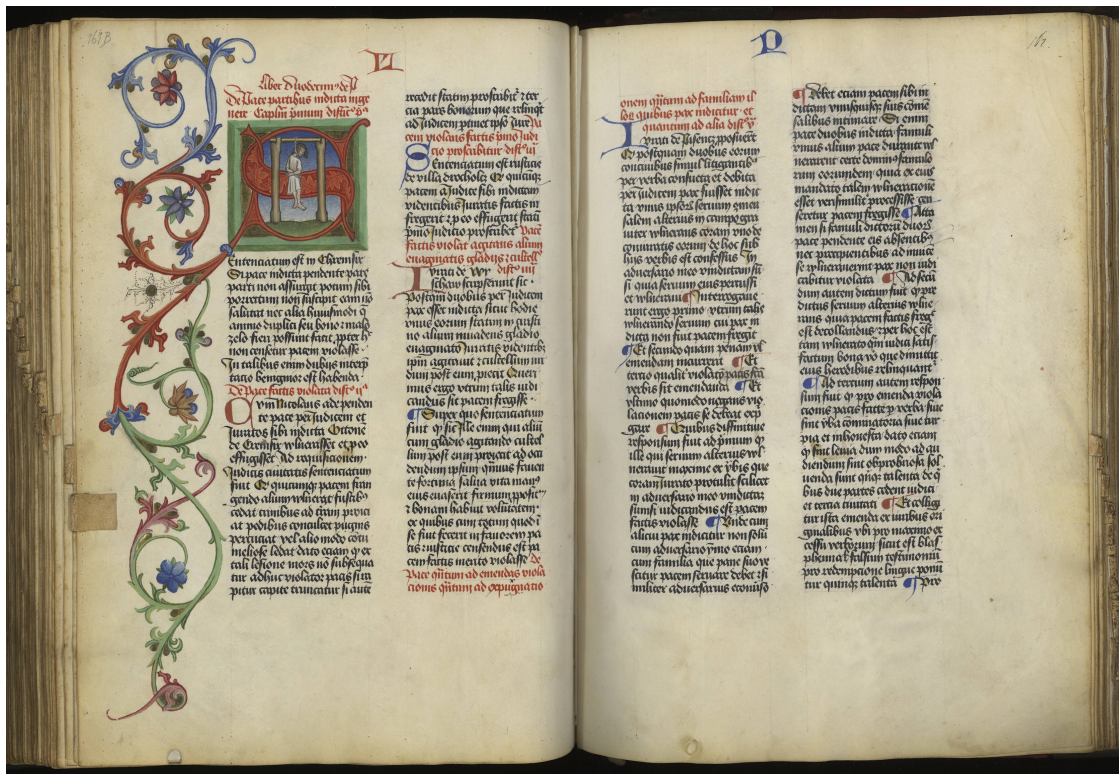 168B
VI
Liber
De Pace partibus indicta inge
nere Caplm primum
S
Entenciatum est in Chremsir
Si pace indicta pendente pars
parti non assurgit potum sibi
porrectum non suscipit eam no
salutat nec alia huiusmodi
animo duplici seu bono malo
zelo fieri possunt facit
non censetur pacem violasse
In talibus enim dubiis interp
tacio benignior est habenda
De Pace factis violata
Cum Nicolaus de penden
te pace per Judicem et
Juratos sibi indicta Ottone
de Cremsir wlnerasset et
effugisset Ad requisicionem
Judicis ciuitatis sentenciatum
fuit quicumque pacem fran
gendo alium wlnerat fustibus
cedat crinibus ad terram proici
at pedibus conculcet pugnis
percuciat vel alio modo
meliose ledat dato eciam ex
tali lesione mors no subsequa
tur adhuc violator pacis
pitur capite truncatur si aute
recedit statim proscribit ter
cia pars bonorum que relinqt
ad Judicem ptinet ipso Jure Pa
cem violans factis pmo Judi
cio proscribitur
Sentenciatum est rusticis
de villa quicumque
pacem a Judice sibi indictam
videntibus Juratis factis in
fregerit et effugerit
pmo Judicio proscribet Pace
factis violat agitans alium
euaginatis gladiis cultell
Jurati de
scripserunt sic
Postquam duobus per Judicem
pax esset indicta sicut hodie
vnus eorum statim
no alium inuadens gladio
euaginato Juratis videntib
ipm agitauit cultellum
dium post eum proiecit Queri
mus ergo vtrum talis iudi
candus sit pacem fregisse
Super quo sentenciatum
fuit sic Ille enim qui aliu
cum gladio agitando cultel
lum post eum proiecit ad occi
dendum ipsum fauen
te fortuna salua vita man
eius euaserit
bonam habuit voluntatem
ex quibus cum totum quod
se fiut fecerit in fauorem pa
cis iusticie censendus est pa
cem factis merito violasse De
Pace qntum ad emendas viola
cionis qntum ad expugnatio
P
onem qntum ad familiam il
lor quibus pax indicatur et
quantum ad alia
Jurati de posuerut
postquam duobus eorum
conciuibus simul litigantib
per verba consueta et debita
per iudicem pax fuisset indic
ta vnus seruum
salem alterius in campo gra
uiter wlneras coram vno de
Juratis eorum de hoc sub
hiis verbis est confessus In
aduersario meo vindictam su
si quia seruum eius percussi
et wlneraui Interrogaue
runt ergo primo vtrum talis
wlnerando seruum cui pax in
dicta non fuit pacem fregit
Et secundo quam penam vl
emendam incurrerit Et
tercio qualit violatoris pacis
verbis sit emendanda Et
vltimo quomodo negans vio
lacionem pacis se debeat exp
gare Quibus diffinitiue
responsum fuit ad primum
ille qui seruum alterius wl
nerauit maxime ex verbis que
coram Jurato protulit scilicet
in aduersario meo vindictam
sumsi iudicandus est pacem
factis violasse Vnde cum
alicui pax indicitur non solu
cum aduersario ymo eciam
cum familia que pane suo ve
scitur pacem seruare debet si
militer aduersarius econuerso
Debet eciam pacem sibi in
dictam vniusque suis comen
salibus intimare Si enim
pace duobus indicta famuli
vnius alium pace durante wl
nerarent certe dominus famulo
rum eorumdem quia ex eius
mandato talem wlneracionem
esset verisimilit processisse cen
seretur pacem fregisse Atta
men si famuli dictorum duor
pace pendente eis absentib
nec precipientibus ad inuice
se wlnerauerint pax non iudi
cabitur violata Ad secun
dum autem dictum fuit pre
dictus seruum alterius wlne
rans quia pacem factis fregit
est decollandus per hoc est
tam wlnerato qm iudici satis
factum bona vero que dimittit
eius heredibus relinquant
Ad tercium autem respon
sum fuit pro emenda viola
cionis pacis facte per verba siue
sint verba comminatoria siue tur
pia et inhonesta dato eciam
sint leuia dum modo ad au
diendum sint obprobriosa sol
uenda sunt quinque talenta de
bus due partes cedent iudici
et tercia ciuitati Et collig
tur ista emenda ex iuribus ori
ginalibus vbi pro maximo ex
cessu verborum sicut est blas
phemia falsum testimonium
pro redempcione lingue poni
tur quinque talenta Pro